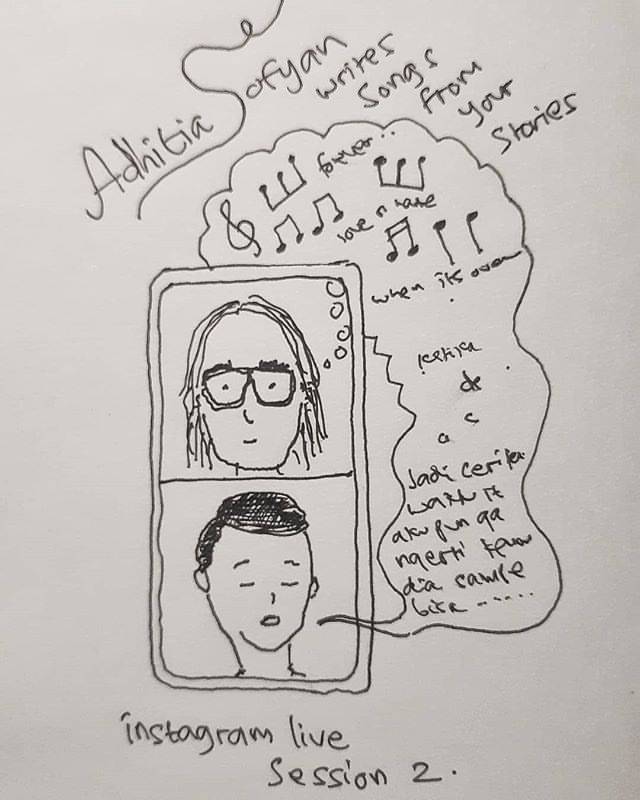 Adhitia Sofyan
writes
songs
from
your
stories
forever..
love n hate
when its over
ketika
Jadi cerita
waktu it
aku pun ga
ngerti
dia sampe
bisa ......
instagram live
Session 2.